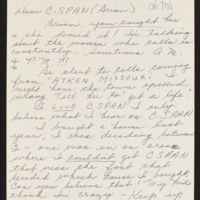 Dear C-SPAN (Brian)
Brian, you caught her
& she denied it! I'm talking
about the woman who calls in
constantly. Sometimes A.M.
& P.M.!!!
Be alert to calls coming
from "AITKEN, MISSOURI" (
might have the town spelled
wrong). Tell her to "get a life"
I LOVE CSPAN I only
believe what I hear on C-SPAN
I bought a house last
year. I was deciding between
2 - one was in an area
where I couldn't get CSPAN
that was the fact that
decided which house I bought.
Can you believe that! My kids
think I'm crazy - Keep up